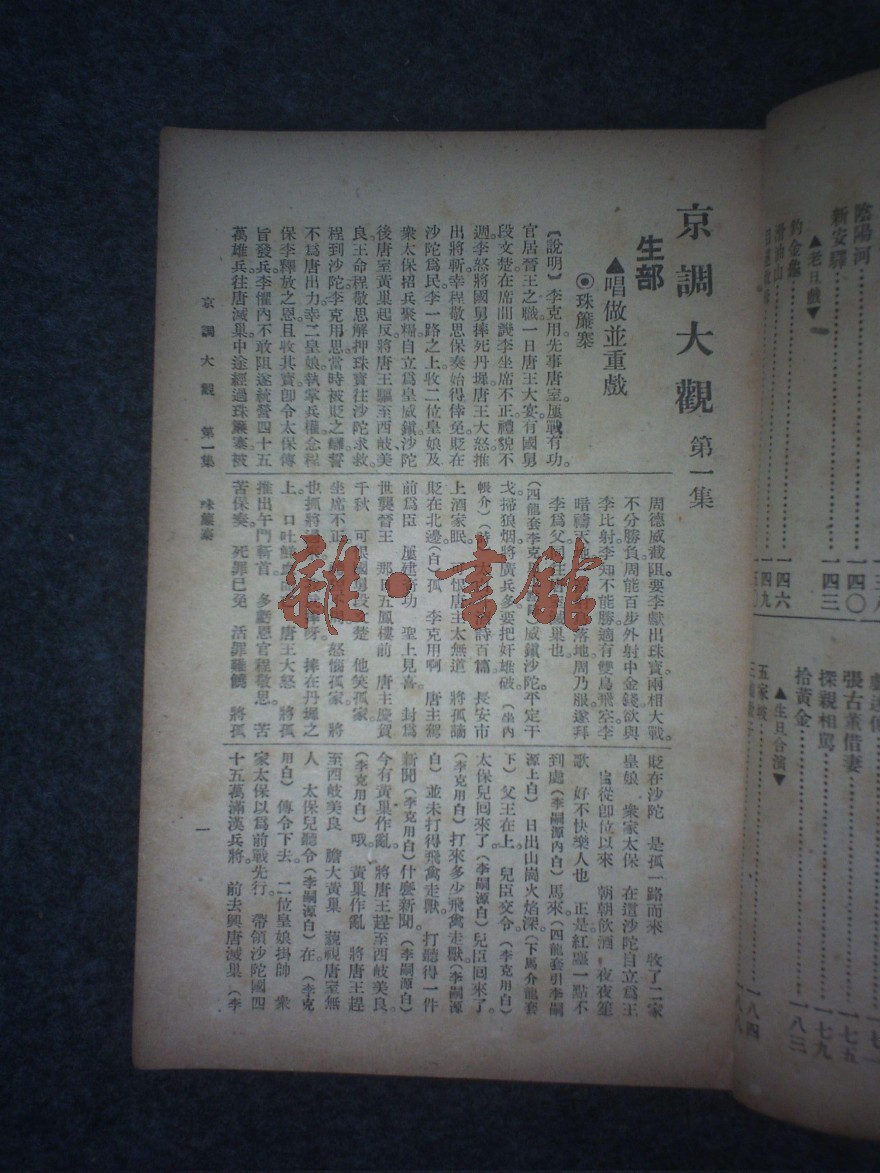 京調大觀 第一集
生部
▲唱做並重戲
◉珠簾寨
〔說明〕李克用先事唐室。屢戰有功。
官居晉王之職。一日唐王大宴。有國舅
段文楚在席間譏李坐席不正。禮貌不
週。李怒將國舅摔死丹墀。唐王大怒。推
出將斬。幸程敬思保奏。始得倖免。貶在
沙陀爲民。李一路之上。收二位皇娘及
衆太保。招兵聚糧。自立爲皇。威鎮沙陀
後唐室黃巢起反。將唐王驅至西岐美
良。王命程敬思解押珠寶往沙陀求救。
程到沙陀。李克用思當時被貶之讎。誓
不爲唐出力。幸二皇娘執掌兵權。念程
保李釋放之恩。且收其寶。卽令太保傳
旨發兵。李懼內不敢阻。遂統營四十五
萬雄兵。往唐滅巢。中途經過珠簾寨。被
周德威截阻。要李獻出珠寶。兩相大戰。
不分勝負。周能百步外射中金錢。欲與
李比射。李知不能勝。適有雙鳥飛空。李
暗禱天地
落地。周乃服。遂拜
李爲父。同往
國巢也。
（四龍套李克用
威鎮沙陀。不定干
戈掃狼烟。將廣兵多要把奸雄破。（坐內
帳介）（詩
詩百篇。長安市
上酒家眠。
恨唐王太無道。將孤謫
貶在北邊（白）孤。李克用啊。唐主駕
前爲臣。屢建奇功。聖上見喜。封爲
世襲晉王。那日五鳳樓前。唐主慶賀
千秋。可恨國舅段文楚。他笑孤家。
坐席不正
怒惱孤家。將
也抓將過
摔呀。摔在丹墀之
上。口吐鮮血而
唐王大怒。將孤
推出午門斬首。多虧恩官程敬思。苦
苦保奏。死罪已免。活罪難饒。將孤
貶在沙陀。是孤一路而來。收了二家
皇娘。衆家太保。在這沙陀自立爲王
。自從卽位以來。朝朝飲酒。夜夜笙
歌。好不快樂人也。正是紅塵一點不
到處（李嗣源內白）馬來（四龍套引李嗣
源上白）日出山崗火焰深。（下馬介龍套
下）父王在上。兒臣交令。（李克用白）
太保兒回來了（李嗣源白）兒臣回來了。
（李克用白）打來多少飛禽走獸。（李嗣源
白）並未打得飛禽走獸。打聽得一件
新聞（李克用白）什麼新聞。（李嗣源白）
今有黃巢作亂。將唐王趕至西岐美良。
（李克用白）哦。黃巢作亂。將唐王趕
至西岐美良。膽大黃巢。藐視唐室無
人。太保兒聽令（李嗣源白）在。（李克
用白）傳令下去。二位皇娘掛帥。衆
家太保以爲前戰先行。帶領沙陀國四
十五萬滿漢兵將。前去興唐滅巢（李
京調大觀 第一集 珠簾寨
一
陰陽河
新安驛
一四〇
一四三
▲老旦戲▼
釣金龜
一四六
滑油山
一四九
張古董借妻
一七五
探親相罵
一七九
拾黃金
一八三
▲生旦合演▼
五家坡
一八四
雜·書館